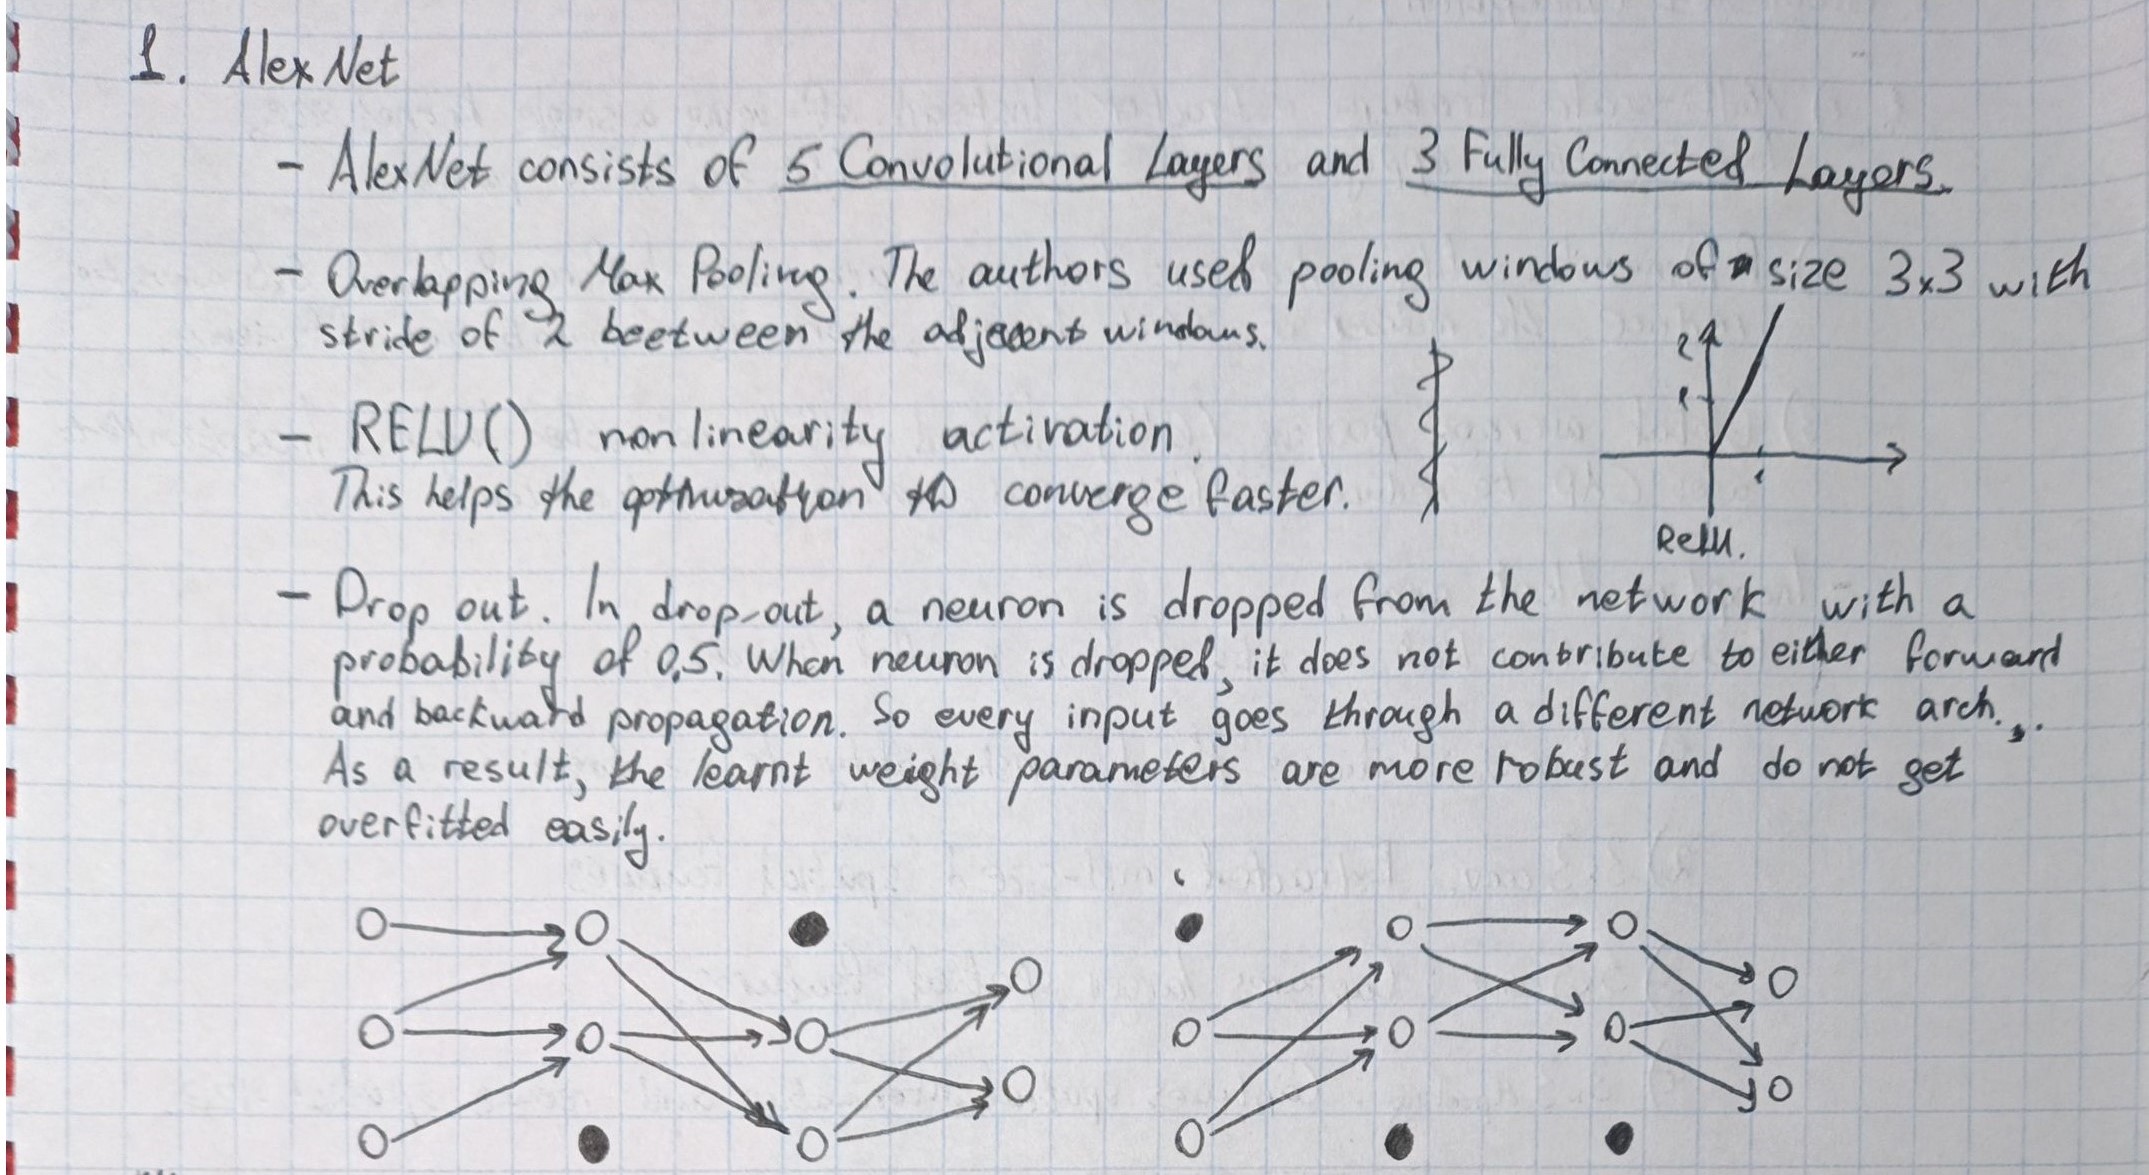 1. AlexNet
- AlexNet consists of 5 Convolutional Layers and 3 Fully Connected Layers.
- Overlapping Max Pooling. The authors used pooling windows of size 3x3 with
stride of 2 beetween the adjacent windows.
2
1
1
ReLU.
- RELU() nonlinearity activation.
This helps the optimization to converge faster.
- Drop out. In drop-out, a neuron is dropped from the network with a
probability of 0,5. When neuron is dropped, it does not contribute to either forward
and backward propagation. So every input goes through a different network arch...
As a result, the learnt weight parameters are more robust and do not get
overfitted easily.